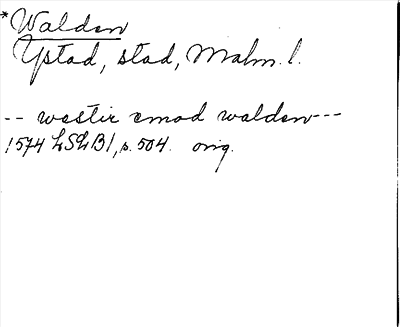 *Walden
Ystad, stad, Malm. l.
-- westir emod walden ---
1574 LSLB 1, s. 504. orig.